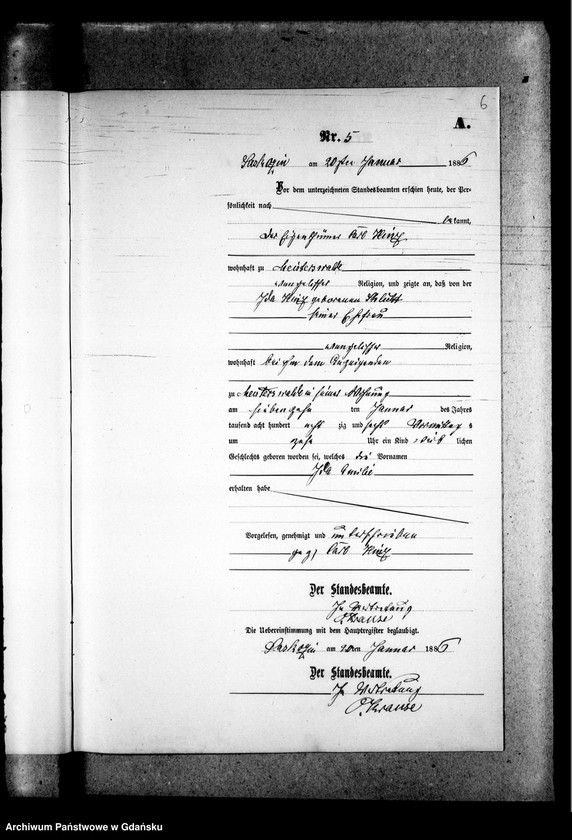 6
A.
Nr. 5
Saskozin am 20sten Januar 1886
Vor dem unterzeichneten Standesbeamten erschien heute, der Per-
sönlichkeit nach
bekannt,
der Eigenthümer Carl
wohnhaft zu Meisterswalde
evangelischer Religion, und zeigte an, daß von der
Ida geborenen
seiner Ehefrau
evangelischer Religion,
wohnhaft bei ihm dem Anzeigenden
zu Meisterswalde in seiner Wohnung
am siebenzehn ten Januar des Jahres
tausend acht hundert acht zig und sechs Vormittag s
um zehn Uhr ein Kind weib lichen
Geschlechts geboren worden sei, welches die Vornamen
Ida Emilie
erhalten habe
Vorgelesen, genehmigt und unterschrieben
gez) Carl
Der Standesbeamte.
In Vertretung
Krause
Die Uebereinstimmung mit dem Hauptregister beglaubigt.
Saskozin am 20ten Januar 1886
Der Standesbeamte.
In Vertretung
Krause
Archiwum Państwowe w Gdańsku